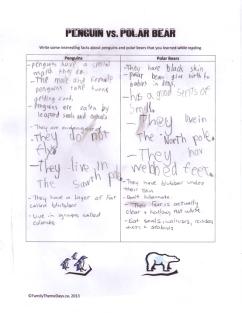 PENGUIN vs. POLAR BEAR
Write some interesting facts about penguins and polar bears that you learned while reading
Penguins
- penguins have a special
The male and female
penguins take turns
getting food.
- Penguins are eaten by
leopard seals and
- They are endangered
- They do not
fly
- They live in
The South pole
- They have a layer of fat
called blubber
- Live in groups called
colonies
Polar Bears
- They have black skin
- polar bear give birth to
babies in dens.
- has a good sents of
Smell.
- They live in
The North pole.
- They hav
webbed feet.
- They have blubber under
their skin
- Don't hibernate
- Their fur is actually
clear + hollow, not white
- Eat seals, walruses,
©FamilyThemeDays.ca, 2013